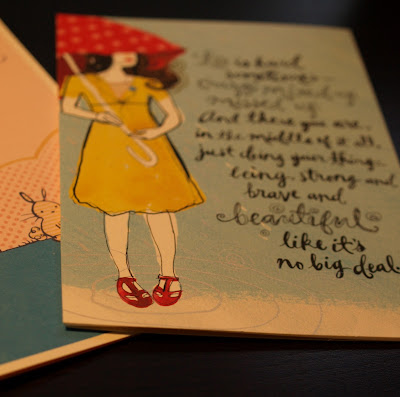 is hard
sometimes
messed up
And there you are,
in the middle of it all,
just doing your thing.
being strong and
brave and
beautiful
like it's
no big deal.